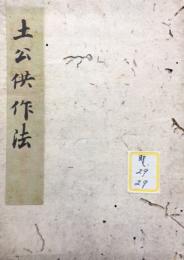 土公供作法
29
29